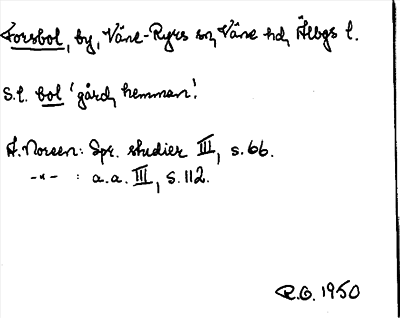 Forsbol, by, Väne-Ryrs sn, Väne hd, Älvsbgs l.
S.l. bol 'gård, hemman'.
A. Noreen: Spr. studier III, s. 66.
-"- : a.a. III, s. 112.
R.O. 1950